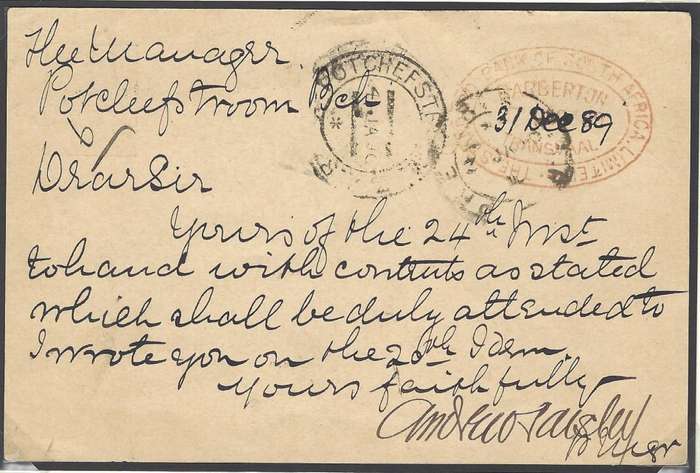 The Manager
Potchefstroom Bch
POTCHEFST
BANK OF SOUTH AFRICA LIMITED
BARBERTON
31 Dec 89
TRANSVAAL
Dear Sir
Yours of the 24th Inst
to hand with contents as stated
which shall be duly attended to
I wrote you on the 20th Idem
Yours faithfully
Andrew Paisley